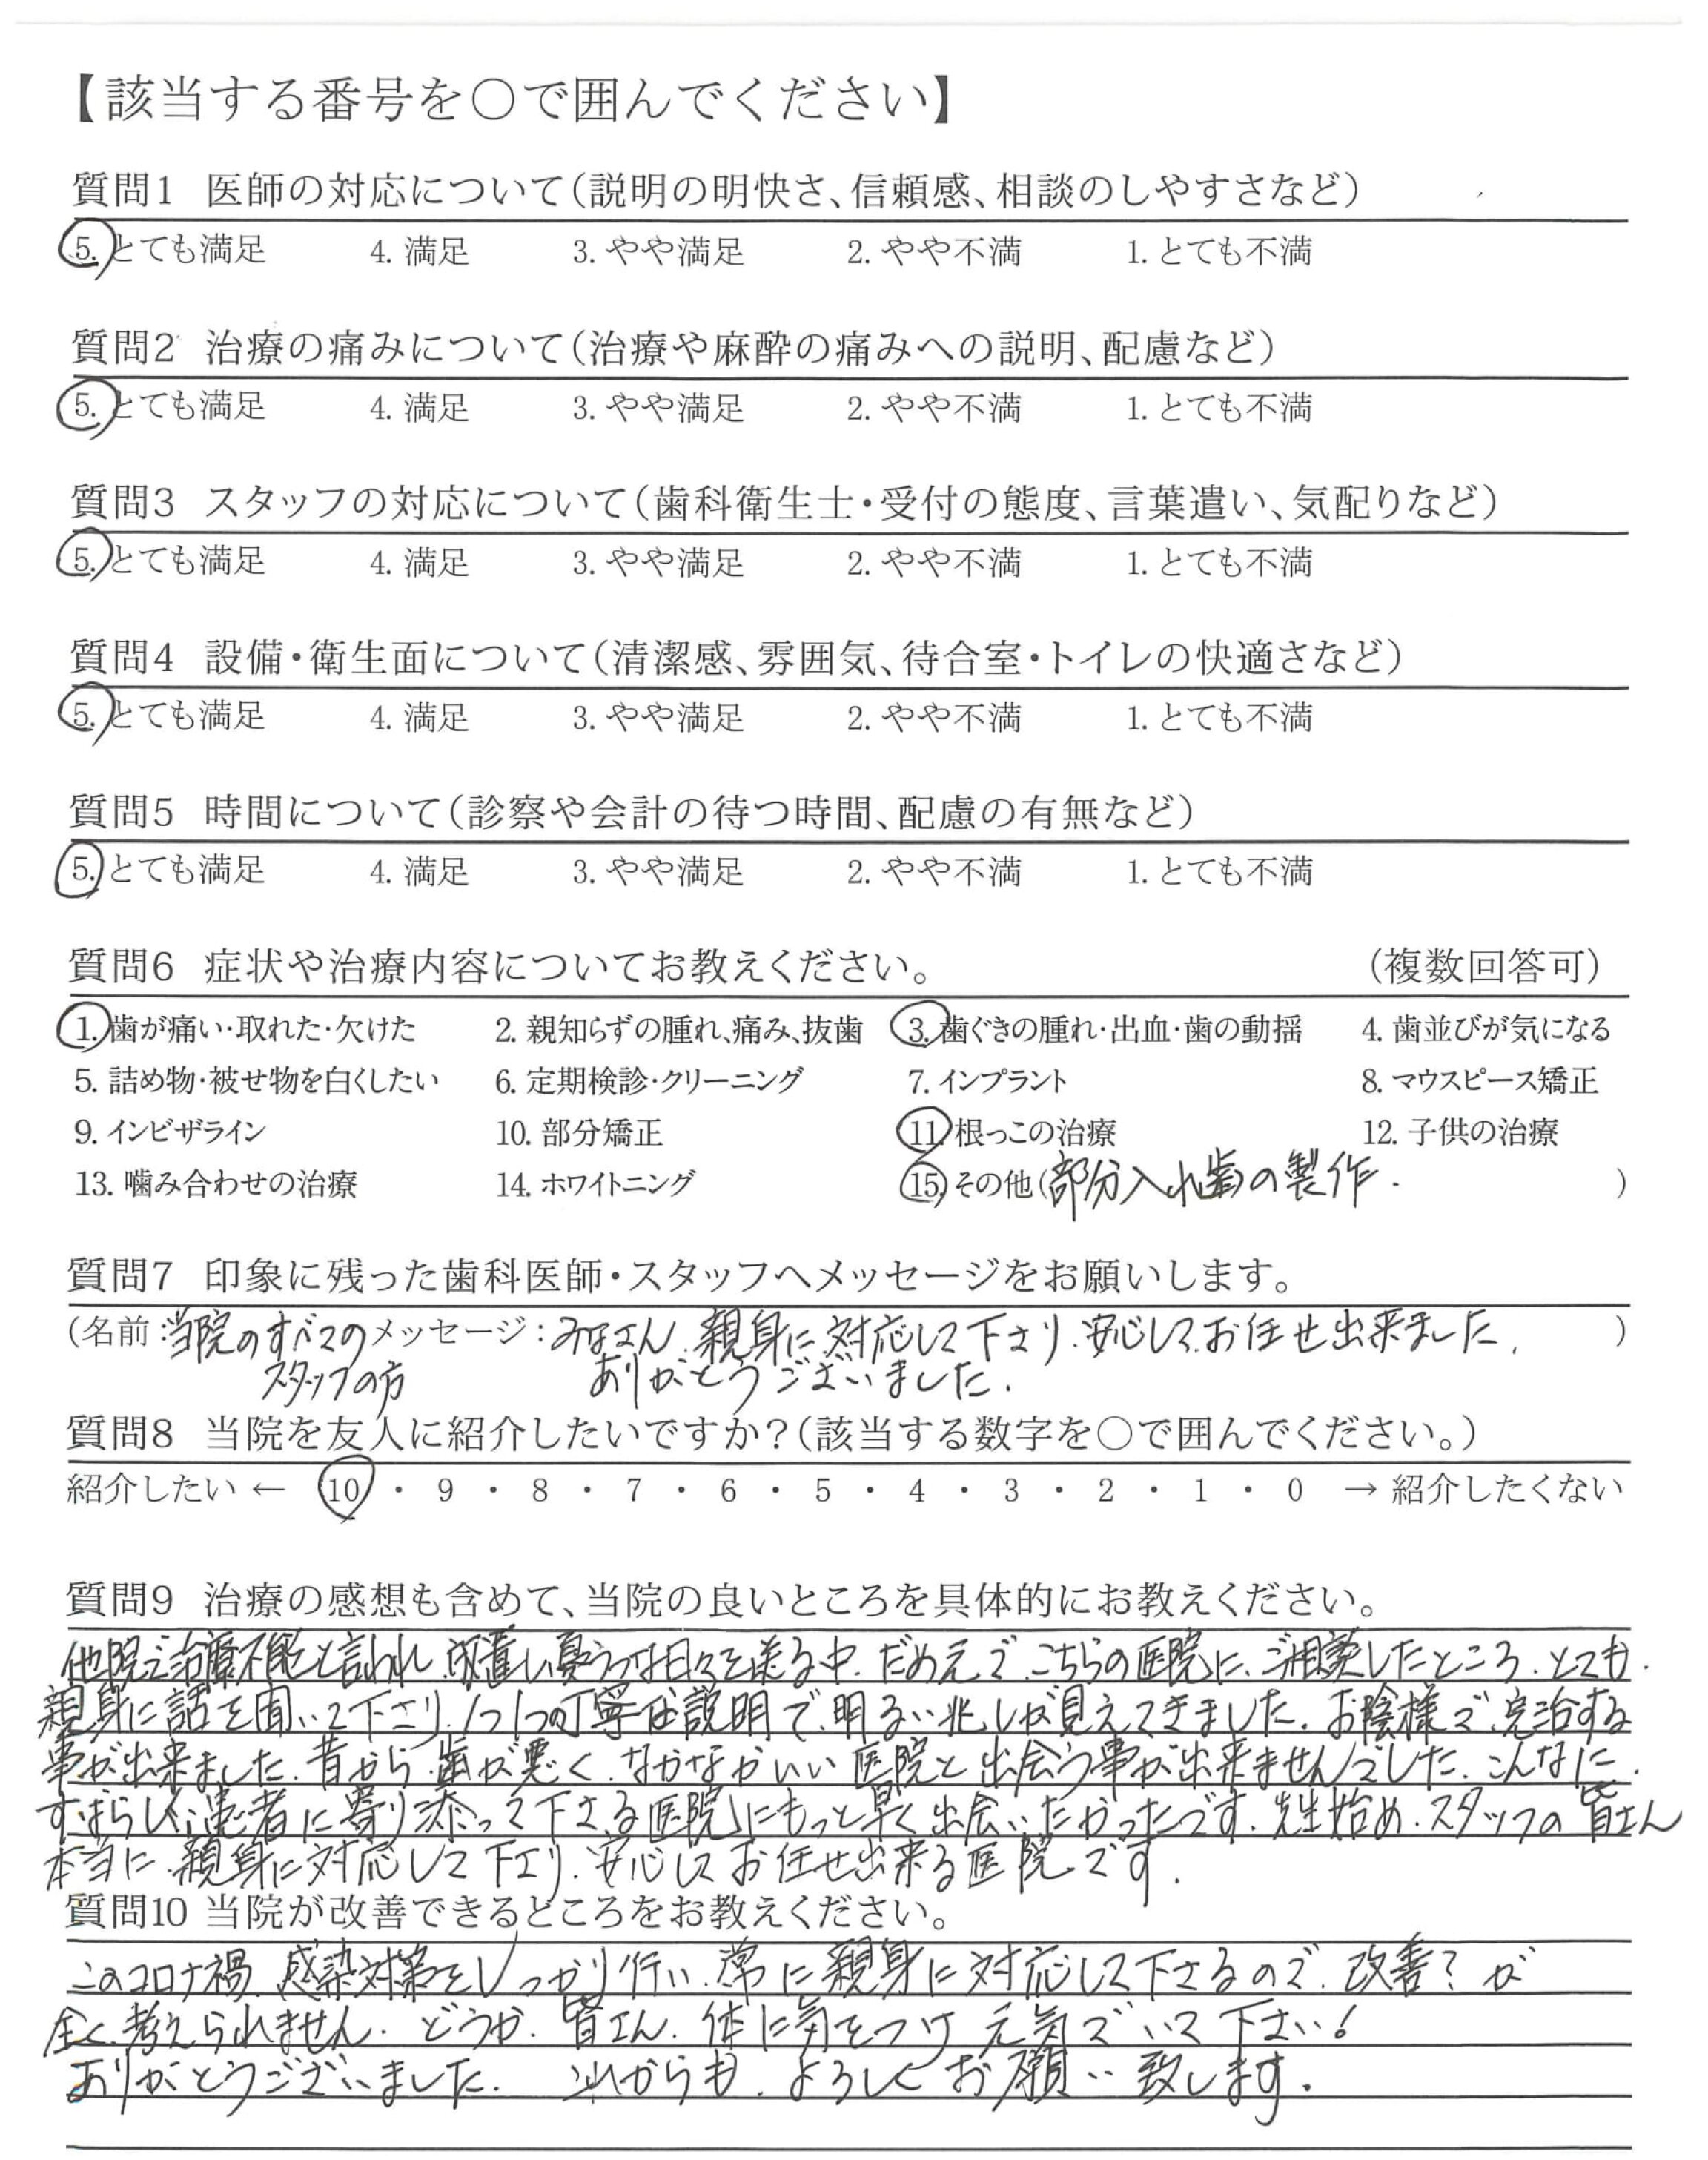 【該当する番号を○で囲んでください】
質問1 医師の対応について(説明の明快さ、信頼感、相談のしやすさなど)
5. とても満足 4. 満足 3. やや満足 2. やや不満 1. とても不満
質問2 治療の痛みについて(治療や麻酔の痛みへの説明、配慮など)
5. とても満足 4. 満足 3. やや満足 2. やや不満 1. とても不満
質問3 スタッフの対応について(歯科衛生士・受付の態度、言葉遣い、気配りなど)
5. とても満足 4. 満足 3. やや満足 2. やや不満 1. とても不満
質問4 設備・衛生面について(清潔感、雰囲気、待合室・トイレの快適さなど)
5. とても満足 4. 満足 3. やや満足 2. やや不満 1. とても不満
質問5 時間について(診察や会計の待つ時間、配慮の有無など)
5. とても満足 4. 満足 3. やや満足 2. やや不満 1. とても不満
質問6 症状や治療内容についてお教えください。 (複数回答可)
1. 歯が痛い・取れた・欠けた 2. 親知らずの腫れ、痛み、抜歯 3. 歯ぐきの腫れ・出血・歯の動揺 4. 歯並びが気になる
5. 詰め物・被せ物を白くしたい 6. 定期検診・クリーニング 7. インプラント 8. マウスピース矯正
9. インビザライン 10. 部分矯正 11. 根っこの治療 12. 子供の治療
13. 噛み合わせの治療 14. ホワイトニング 15. その他(部分入れ歯の製作. )
質問7 印象に残った歯科医師・スタッフへメッセージをお願いします。
(名前:当院のすべての メッセージ:みなさん、親身に対応して下さり、安心してお任せ出来ました。 )
スタッフの方 ありがとうございました。
質問8 当院を友人に紹介したいですか?(該当する数字を○で囲んでください。)
紹介したい ← 10 ・ 9 ・ 8 ・ 7 ・ 6 ・ 5 ・ 4 ・ 3 ・ 2 ・ 1 ・ 0 → 紹介したくない
質問9 治療の感想も含めて、当院の良いところを具体的にお教えください。
他院で治療不能と言われ、放置し憂うつな日々を送る中、だめ元で、こちらの医院に、ご相談したところ、とても、
親身に話を聞いて下さり、1つ1つの丁寧な説明で、明るい兆しが見えてきました。お陰様で、完治する
事が出来ました。昔から、歯が悪く、なかなかいい医院と出会う事が出来ませんでした。こんなに、
すばらしく、患者に寄り添って下さる医院にもっと早く出会いたかったです。先生始め、スタッフの皆さん
本当に、親身に対応して下さり、安心してお任せ出来る医院です。
質問10 当院が改善できるところをお教えください。
このコロナ禍、感染対策をしっかり行い、常に親身に対応して下さるので、改善?が
全く考えられません。どうか、皆さん、体に気をつけ元気でいて下さい!
ありがとうございました。これからも、よろしくお願い致します。